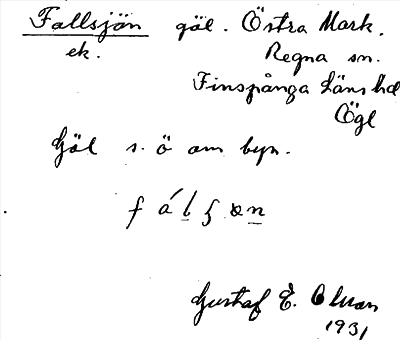 Fallsjön göl. Östra Mark.
ek. Regna sn.
Finspånga läns hd
Ögl
Göl s. ö om byn.
Gustaf E.
1931